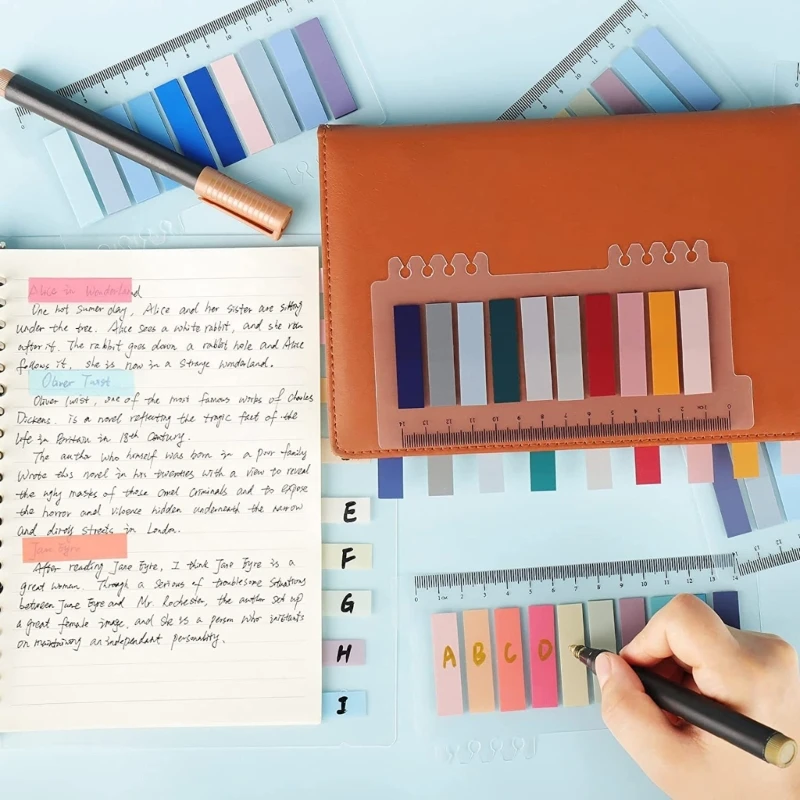 Alice in Wonderland
One hot sumer day, Alice and her sister are sitting
under the tree. Alice sees a white rabbit, and she run
after it. The rabbit goes down a rabbit hole and Alice
follows it, she is now in a strange wonderland.
Oliver Twist
Oliver Twist, one of the most famous works of Charles
Dickens. Is a novel reflecting the tragic fact of the
life in Britain in 18th Century.
The author who himself was born in a poor family
Wrote this novel in his twenties with a view to reveal
the ugly masks of those cruel criminals and to expose
the horror and vilolence hidden underneath the narrow
and dirty streets in London.
Jane Eyre
After reading Jane Eyre, I think Jane Eyre is a
great woman. Through a serious of troublesome situations
between Jane Eyre and Mr Rochester, the author set up
a great female image, and she is a person who insistants
on maintaining an independant personality.
E
F
G
H
I
A B C D